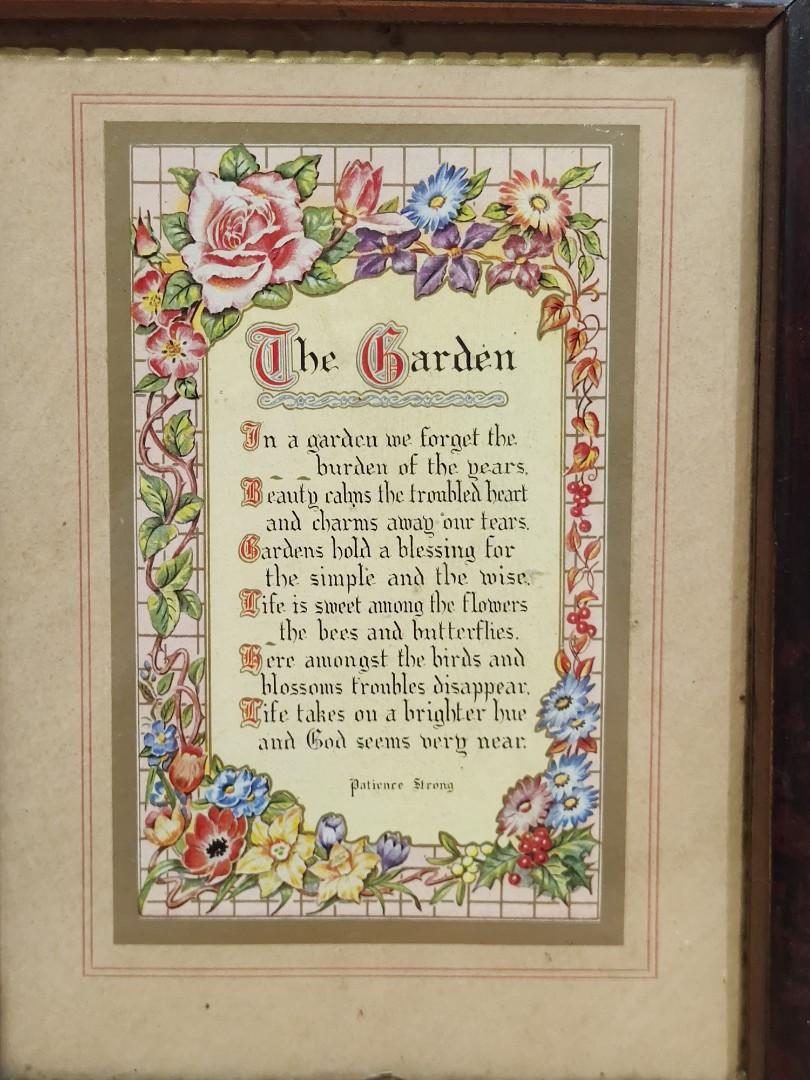 The Garden
In a garden we forget the
burden of the years.
Beauty calms the troubled heart
and charms away our tears.
Gardens hold a blessing for
the simple and the wise.
Life is sweet among the flowers
the bees and butterflies.
Here amongst the birds and
blossoms troubles disappear.
Life takes on a brighter hue
and God seems very near.
Patience Strong